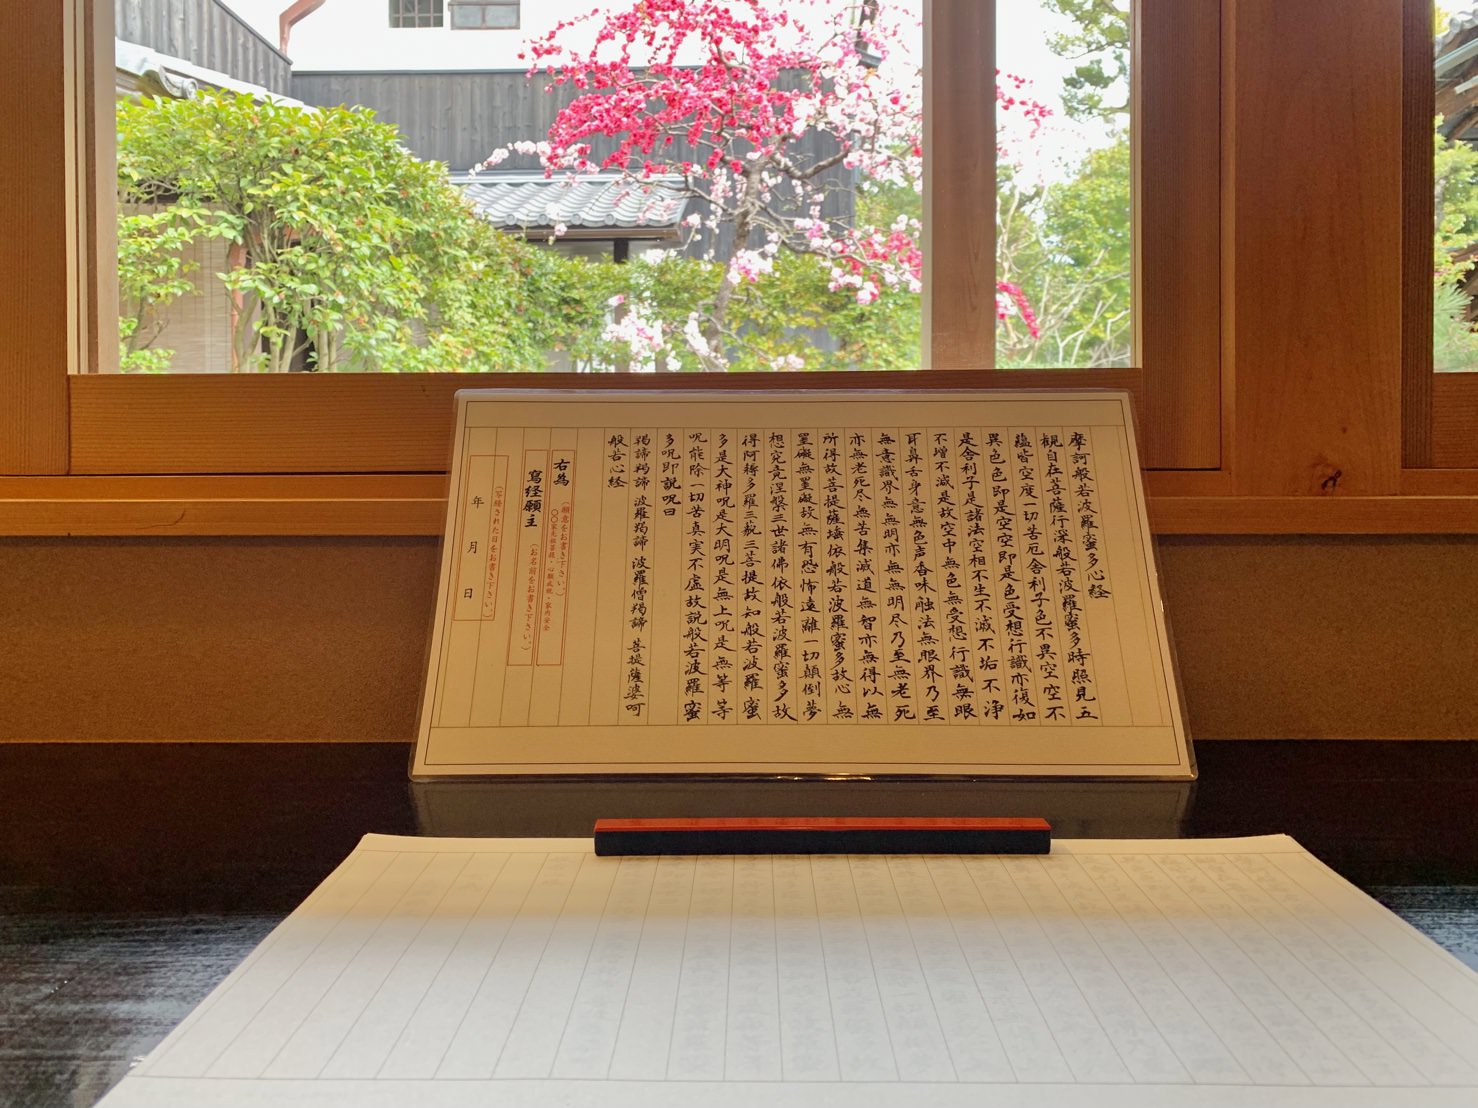 摩訶般若波羅蜜多心経
観自在菩薩行深般若波羅蜜多時照見五
蘊皆空度一切苦厄舎利子色不異空空不
異色色即是空空即是色受想行識亦復如
是舎利子是諸法空相不生不滅不垢不浄
不増不減是故空中無色無受想行識無眼
耳鼻舌身意無色声香味触法無眼界乃至
無意識界無無明亦無無明尽乃至無老死
亦無老死尽無苦集滅道無智亦無得以無
所得故菩提薩埵依般若波羅蜜多故心無
罣礙無罣礙故無有恐怖遠離一切顛倒夢
想究竟涅槃三世諸佛依般若波羅蜜多故
得阿耨多羅三藐三菩提故知般若波羅蜜
多是大神呪是大明呪是無上呪是無等等
呪能除一切苦真実不虚故説般若波羅蜜
多呪即説呪曰
羯諦羯諦 波羅羯諦 波羅僧羯諦 菩提薩婆呵
般若心経
右為
(願意をお書き下さい。)
〇〇家先祖菩提・心願成就・家内安全
寫経願主 (お名前をお書き下さい。)
(写経された日をお書き下さい。)
年 月 日